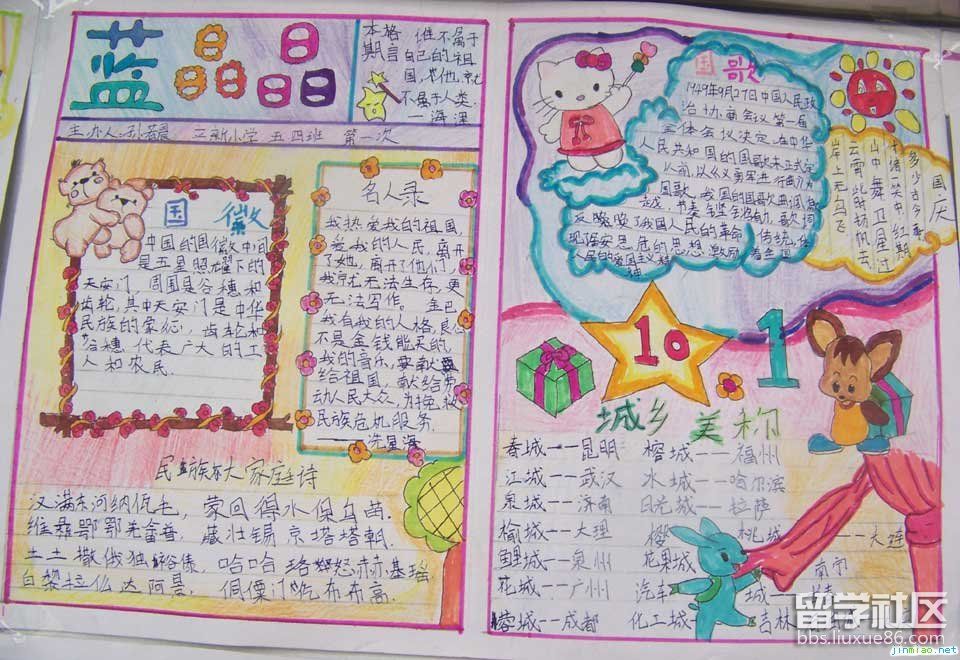 蓝晶晶
本 格
期 言
谁不属于
自己的祖
国,
就
不属于人类。
主办人: 立新小学 五四班 第一次
国徽
中国的国徽中间
是五星照耀下的
天安门,周围是谷穗和
齿轮,其中天安门是中华
民族的象征,齿轮和
谷穗,代表广大的工
人和农民.
名人录
我热爱我的祖国,
爱我的人民,离开
了她,离开了他们,
我 无法生存,更
无法写作。 金巴
我有我的人格,良心
不是金钱能买的。
我的音乐,要献
给祖国,献给劳
动人民大众,为挽救
民族危机服务.
——冼星海
民族大家庭诗
汉满东河纳佤毛, 蒙回得水保乌苗.
维彝鄂鄂羌畲普, 藏壮锡京塔塔朝.
土土撒俄独裕傣, 哈哈珞 怒赫基瑶
白黎拉仫达阿景, 侗傈门仡布布高.
国歌
1949年9月27日中国人民政
治协商会议第一届
全体会议决定,在中华
人民共和国的国歌未正式定
以前,以义勇军进行曲为
国歌.我国的国歌曲调
反映了我国人民的革命传统,
现居安思危的思想,激励
人民的爱国主义精
神
国庆
10
1
城乡美称
春城——昆明 榕城——福州
江城——武汉 水城——哈尔滨
泉城——济南 日光城——拉萨
榆城——大理 樱桃城——大连
鲤城——泉州 花果城
花城——广州 汽车城——长春
蓉城——成都 化工城——吉林
留学社区
bbs.liuxue86.com
jinmiao.net